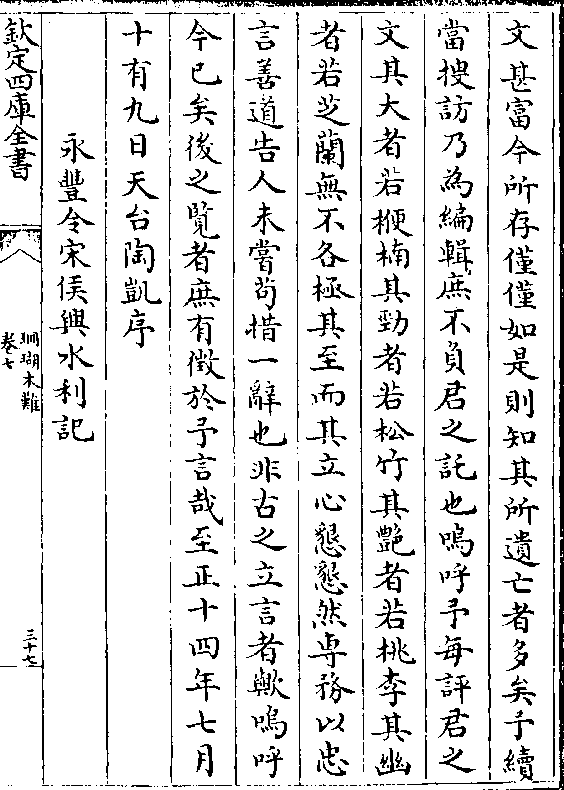 文甚富今所存僅僅如是則知其所遺亡者多矣予續
當搜訪乃為編輯庶不負君之託也嗚呼予每評君之
文其大者若楩楠其勁者若松竹其艷者若桃李其幽
者若芝蘭無不各極其至而其立心懇懇然専務以忠
言善道告人未嘗苟措一辭也非古之立言者歟嗚呼
今已矣後之覽者庶有徴於予言哉至正十四年七月
十有九日天台陶凱序
永豐令宋侯興水利記
欽定四庫全書
珊瑚木難
卷七
三十七